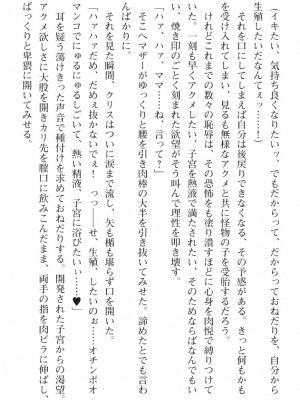 (イキたい、気持ち良くなりたいっ、でもだからって、だからっておねだりを、自分から
生殖したいだなんてぇッ……!)
それを口にしてしまえば自分は後戻りできなくなる、その予感がある。きっと何もかも
を受け入れてしまい、見るも無様なアクメと共に怪物の子を受胎するだろう。
けれどこれまでの数々の恥辱は、その恐怖をも塗り潰すほどに心身を肉悦で縛りつけて
いた。一刻も早くアクメしたい、子宮を熱液で満たされたい、そのためならばなんでもい
い、焼き印のごとく刻まれた欲望がそう叫んで理性を叩き壊す。
「ハァ、ハァ、ママ……ね、言って?」
そこへマザーがゆっくりと腰を引き肉棒の大半を引き抜いてみせた。諦めたとでも言わ
んばかりに。
それを見た瞬間、クリスはつい涙まで流し、矢も楯も堪らず口を開いた。
「ハァハァだめ、だめぇ抜かないでぇ! っっ――せ、生殖、したいのぉ……オチンポオ
マンコでにゅるにゅるしごいて、熱い精液、子宮に浴びたいぃ……♥」
耳を疑う蕩けきった声音で種付けを求めておねだりする。開発された子宮からの渇望。
アクメ欲しさに大股を開きカリ先を膣口に飲みこんだまま、両手の指を肉ビラに伸ばし、
ぱっくりと卑猥に開いてみせる。